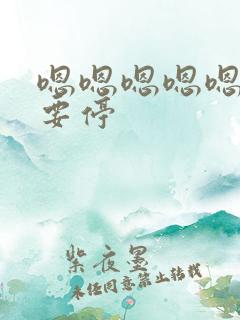 嗯嗯嗯嗯嗯
要停
紫夜墨
未经同意禁止转载